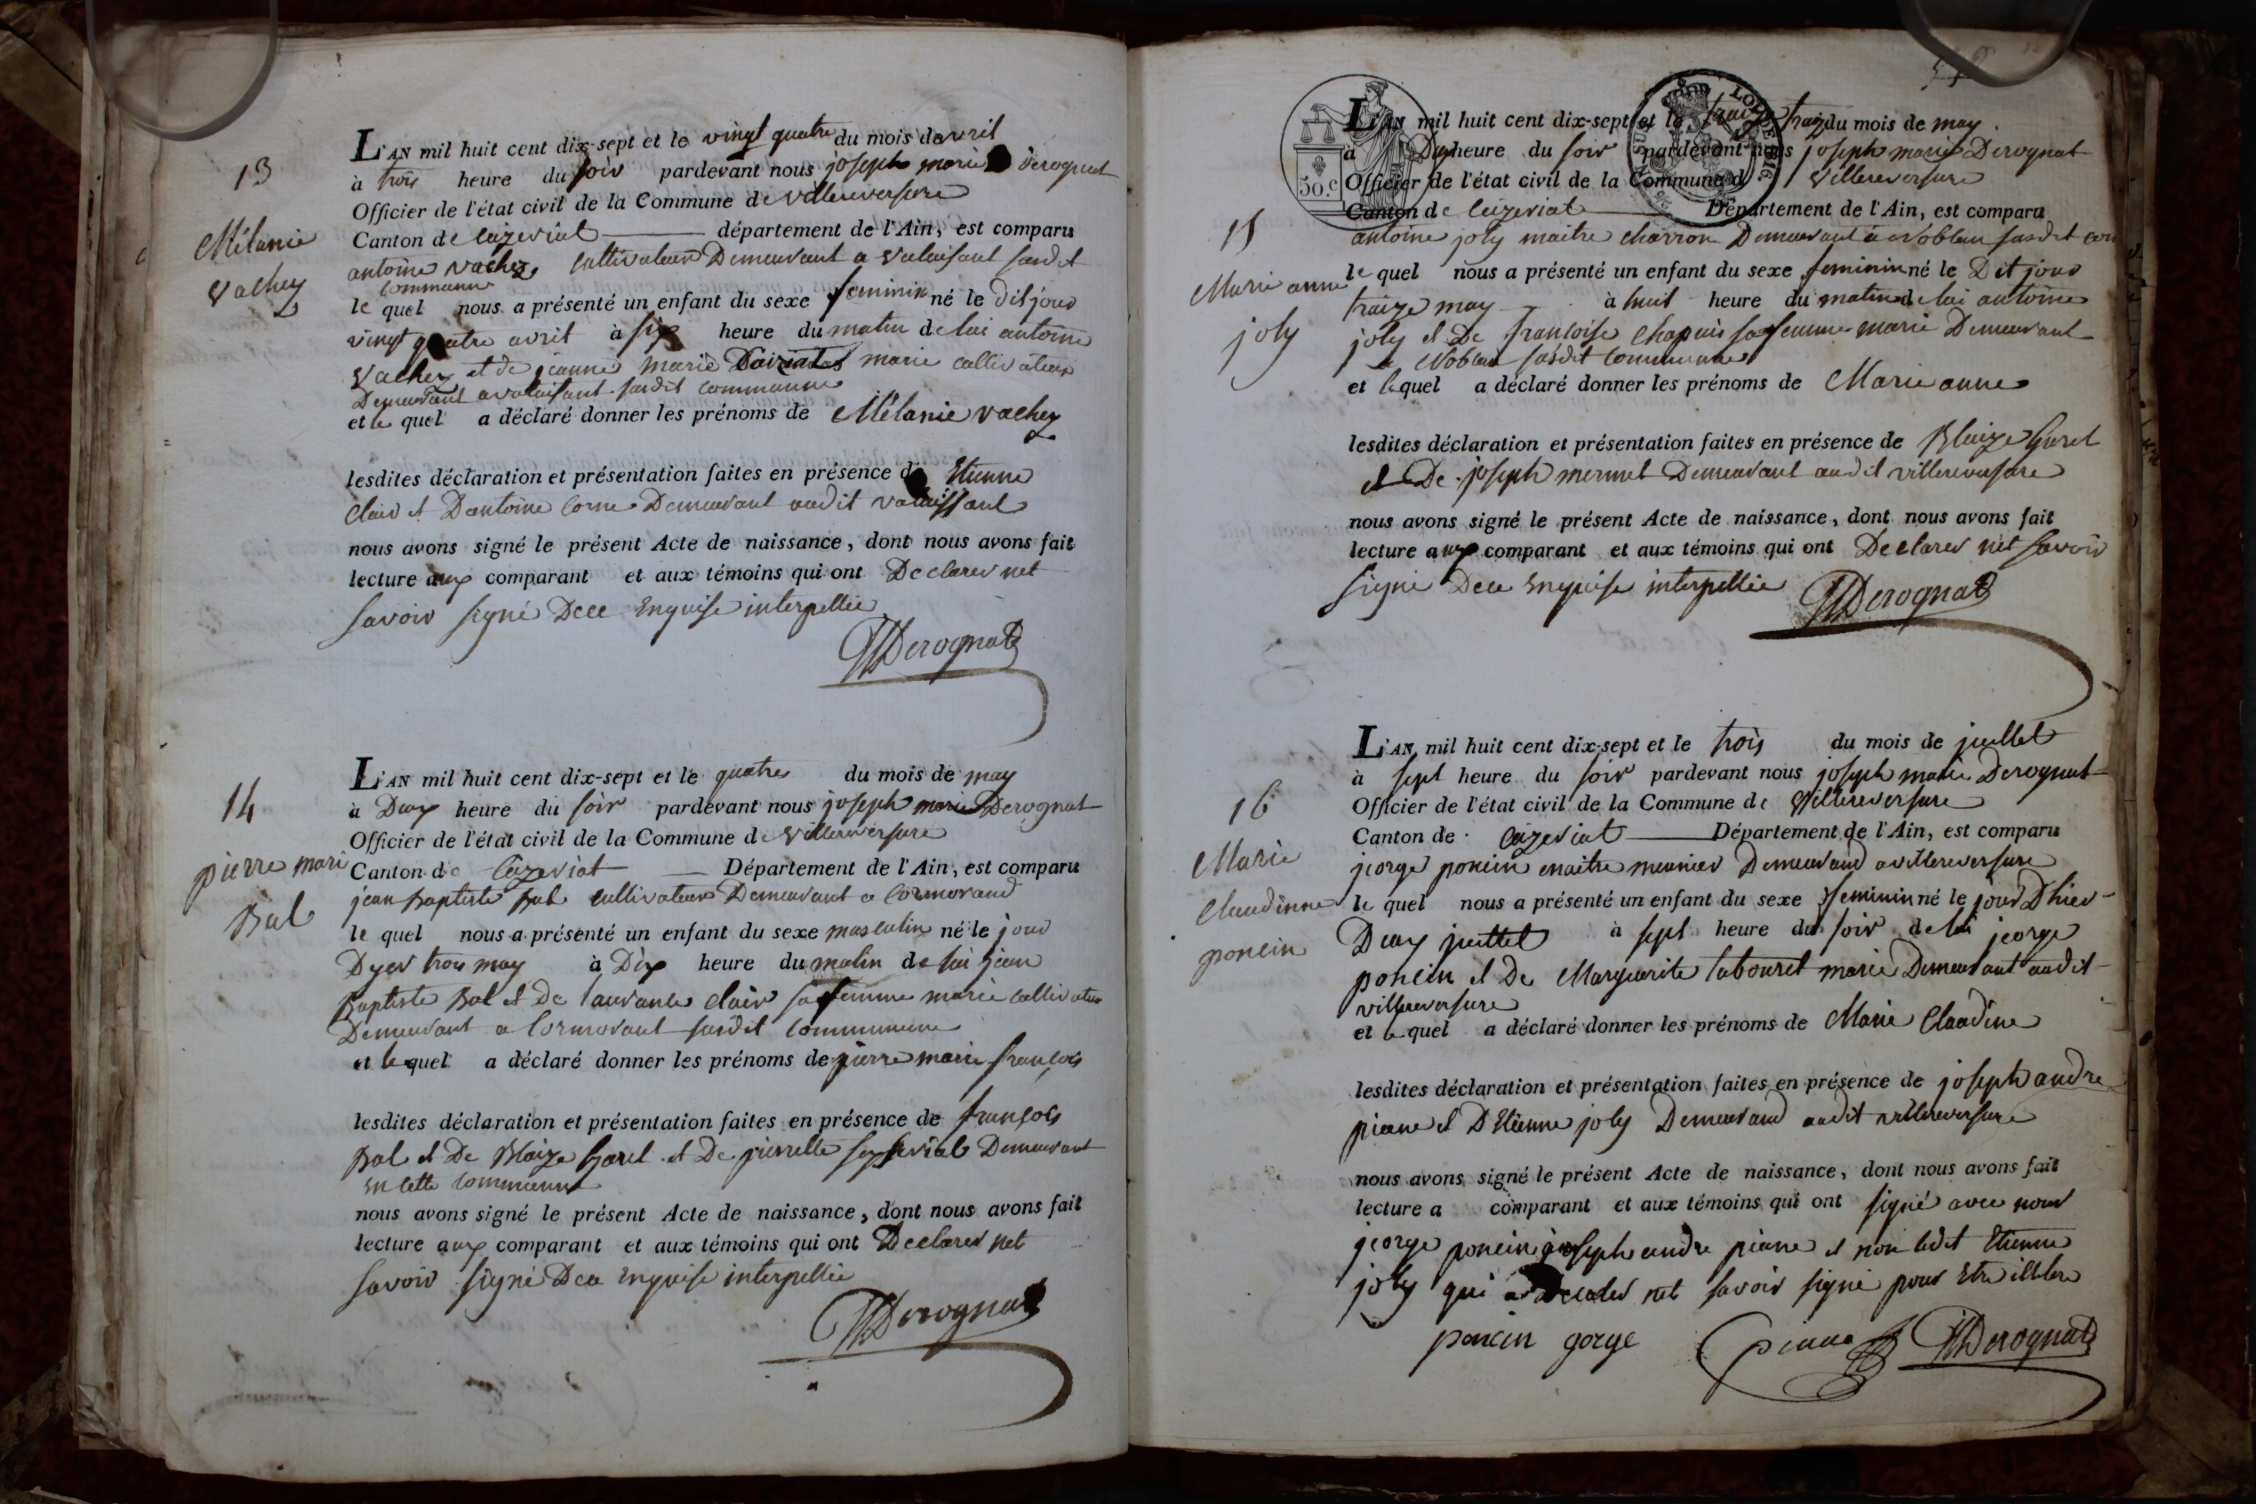 13
Mélanie
Vachey
L'AN mil huit cent dix-sept et le vingt quatre du mois davril
à trois heure du soir pardevant nous joseph marie Derognat
Officier de l'état civil de la Commune de villereversure
Canton de Ceizeriat département de l'Ain, est comparu
antoine vachey cultivateur Demeurant a valaisant susdit
commune
le quel nous a présenté un enfant du sexe feminin né le dit jour
vingt quatre avril à six heure du matin de lui antoine
Vachey et de jeanne marie marie cultivateur
Demeurant a valaisant susdit commune
et le quel a déclaré donner les prénoms de Mélanie vachey
lesdites déclaration et présentation faites en présence de Etienne
Clair et Dantoine Corne Demeurant audit valaissant
nous avons signé le présent Acte de naissance, dont nous avons fait
lecture aux comparant et aux témoins qui ont Declarer net
savoir signé Dece Enquise interpellée
JMDerognat
14
pierre mari
Bal
L'AN mil huit cent dix-sept et le quatre du mois de may
à Deux heure du soir pardevant nous joseph marie Derognat
Officier de l'état civil de la Commune de villereversure
Canton de Ceizeriat Département de l'Ain, est comparu
jean Baptiste Bal cultivateur Demeurant a Cormorand
le quel nous a présenté un enfant du sexe masculin né le jour
Dyer trois may à Dix heure du matin de lui jean
Baptiste Bal et De Laurance Clair sa femme marie cultivateur
Demeurant a Cormorant susdit Commune
et le quel a déclaré donner les prénoms de pierre marie françois
lesdites déclaration et présentation faites en présence de françois
Bal et De Blaize Gurel et De pierrette Demeurant
en Cette Commune
nous avons signé le présent Acte de naissance, dont nous avons fait
lecture aux comparant et aux témoins qui ont Declarer net
savoir signé Dece Enquise interpellée
JMDerognat
50.c
15
Marie anne
joly
L'AN mil huit cent dix-sept et le traize du mois de may
à Dix heure du soir pardevant nous joseph marie Derognat
Officier de l'état civil de la Commune de Villereversure
Canton de Ceizeriat Département de l'Ain, est comparu
antoine joly maitre charron Demeurant a Noblen susdit com
le quel nous a présenté un enfant du sexe feminin né le Dit jour
traize may à huit heure du matin de lui antoine
joly et De francoise Chapuis sa femme marie Demeurant
a Noblen susdit Commune
et le quel a déclaré donner les prénoms de Marie anne
lesdites déclaration et présentation faites en présence de Blaize Gurel
et De joseph mermet Demeurant audit villereversure
nous avons signé le présent Acte de naissance, dont nous avons fait
lecture aux comparant et aux témoins qui ont Declarer net savoir
signé Dece Enquise interpellée JMDerognat
16
Marie
Claudinne
poncin
L'AN mil huit cent dix-sept et le trois du mois de juillet
à sept heure du soir pardevant nous joseph marie Derognat
Officier de l'état civil de la Commune de Villereversure
Canton de Ceizeriat Département de l'Ain, est comparu
jeorge poncin maitre meunier Demeurand a villereversure
le quel nous a présenté un enfant du sexe feminin né le jour Dhier
Deux juillet à sept heure du soir de lui jeorge
poncin et De Marguerite tabouret marie Demeurant audit
villereversure
et le quel a déclaré donner les prénoms de Marie Claudine
lesdites déclaration et présentation faites en présence de joseph andre
piane et D'Etienne joly Demeurand audit villereversure
nous avons signé le présent Acte de naissance, dont nous avons fait
lecture a comparant et aux témoins qui ont signé avec nous
jeorge poncin joseph andre piane et non ledit Etienne
joly qui a net savoir signé pour Etre
poncin gorge piane JMDerognat